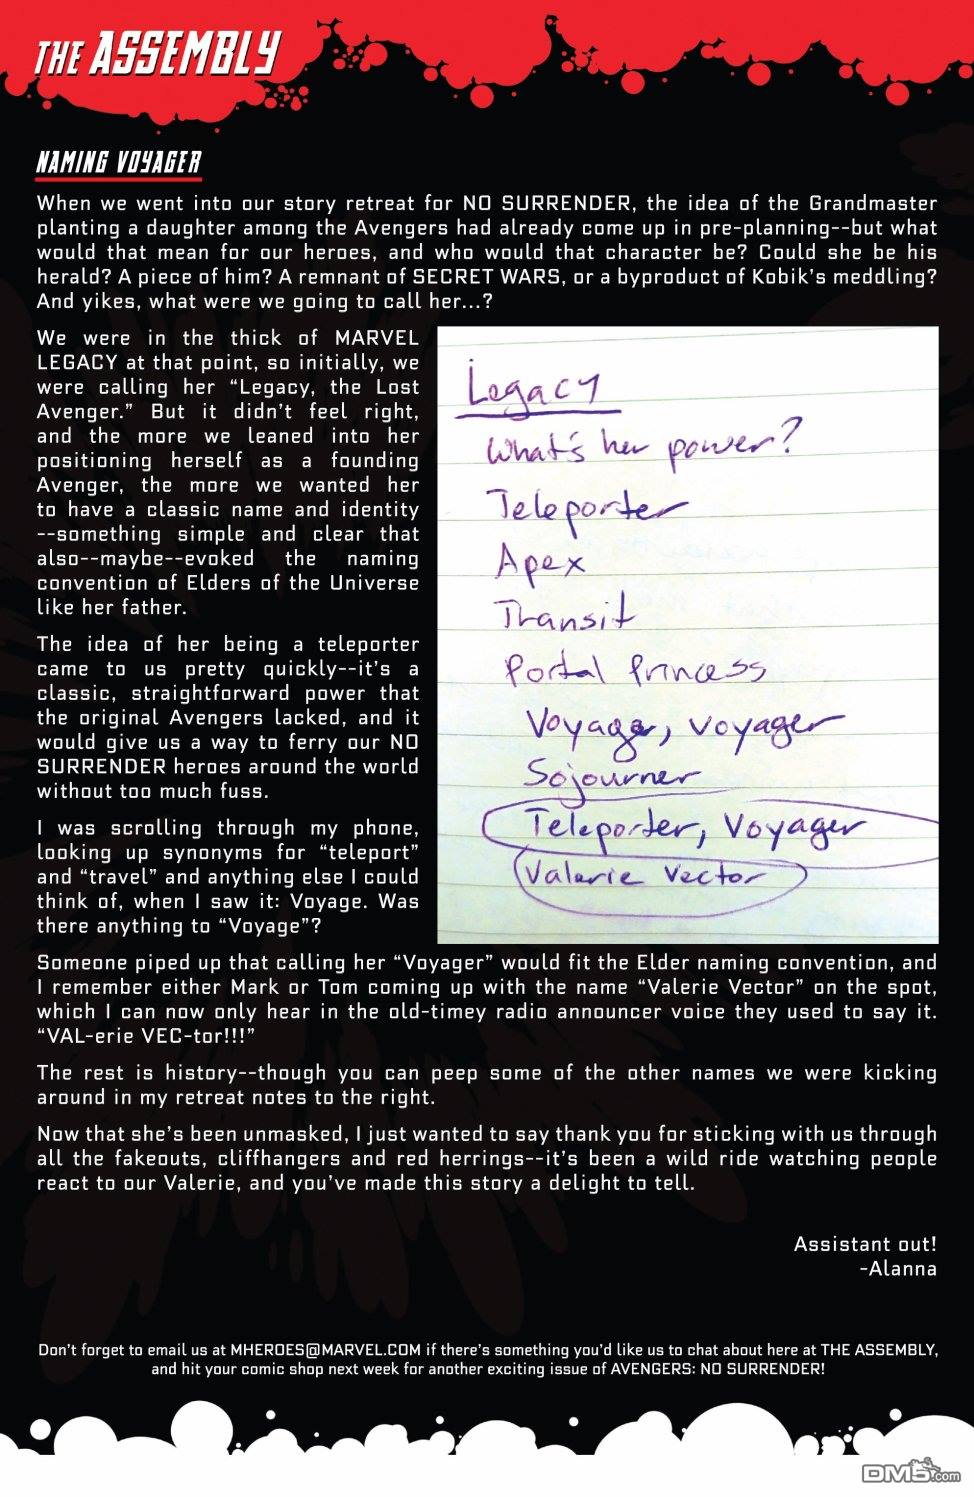 THE ASSEMBLY
NAMING VOYAGER
When we went into our story retreat for NO SURRENDER, the idea of the Grandmaster
planting a daughter among the Avengers had already come up in pre-planning--but what
would that mean for our heroes, and who would that character be? Could she be his
herald? A piece of him? A remnant of SECRET WARS, or a byproduct of Kobik's meddling?
And yikes, what were we going to call her...?
We were in the thick of MARVEL
LEGACY at that point, so initially, we
were calling her “Legacy, the Lost
Avenger.” But it didn't feel right,
and the more we leaned into her
positioning herself as a founding
Avenger, the more we wanted her
to have a classic name and identity
--something simple and clear that
also--maybe--evoked the naming
convention of Elders of the Universe
like her father.
The idea of her being a teleporter
came to us pretty quickly--it's a
classic, straightforward power that
the original Avengers lacked, and it
would give us a way to ferry our NO
SURRENDER heroes around the world
without too much fuss.
I was scrolling through my phone,
looking up synonyms for “teleport”
and “travel” and anything else I could
think of, when I saw it: Voyage. Was
there anything to “Voyage”?
Legacy
What's her power?
Teleporter
Apex
Transit
Portal Princess
Voyager, voyager
Sojourner
Teleporter, Voyager
Valerie Vector
Someone piped up that calling her “Voyager” would fit the Elder naming convention, and
I remember either Mark or Tom coming up with the name “Valerie Vector” on the spot,
which I can now only hear in the old-timey radio announcer voice they used to say it.
“VAL-erie VEC-tor!!!”
The rest is history--though you can peep some of the other names we were kicking
around in my retreat notes to the right.
Now that she's been unmasked, I just wanted to say thank you for sticking with us through
all the fakeouts, cliffhangers and red herrings--it's been a wild ride watching people
react to our Valerie, and you've made this story a delight to tell.
Assistant out!
-Alanna
Don't forget to email us at MHEROES@MARVEL.COM if there's something you'd like us to chat about here at THE ASSEMBLY,
and hit your comic shop next week for another exciting issue of AVENGERS: NO SURRENDER!
DM5.com